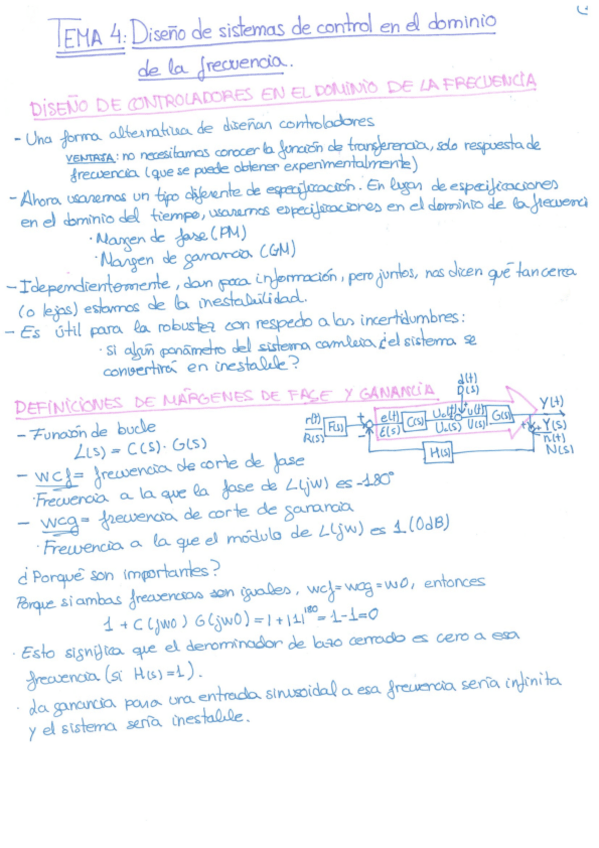 TEMA 4: Diseño de sistemas de control en el dominio
de la frecuencia.
DISEÑO DE CONTROLADORES EN EL DOMINIO DE LA FRECUENCIA
- Una forma alternativa de diseñar controladores
VENTAJA: no necesitamos conocer la función de transferencia, solo respuesta de
frecuencia (que se puede obtener experimentalmente)
- Ahora usaremos un tipo diferente de especificación. En lugar de especificaciones
en el dominio del tiempo, usaremos especificaciones en el dominio de la frecuenci
· Margen de fase (PM)
· Margen de ganancia (GM)
- Idependientemente, dan poca información, pero juntos, nos dicen qué tan cerca
(o lejos) estamos de la inestabilidad.
- Es útil para la robustez con respecto a las incertidumbres:
· si algún parámetro del sistema cambia ¿el sistema se
convertirá en inestable?
DEFINICIONES DE MÁRGENES DE FASE Y GANANCIA
d(t)
D(s)
r(t) R(s) F(s) + - e(t) E(s) C(s) Uo(t) Uo(s) u(t) U(s) G(s) Y(t) Y(s)
n(t)
N(s)
H(s)
- Función de bucle
L(s) = C(s) · G(s)
- wcf = frecuencia de corte de fase
· Frecuencia a la que la fase de L(jw) es -180°
- wcg = frecuencia de corte de ganancia
· Frecuencia a la que el módulo de L(jw) es 1 (0dB)
¿Porqué son importantes?
Porque si ambas frecuencias son iguales, wcf=wcg=w0, entonces
1 + C(jw0) G(jw0) = 1 + |1|^180 = 1-1=0
· Esto significa que el denominador de lazo cerrado es cero a esa
frecuencia (si H(s)=1).
· La ganancia para una entrada sinusoidal a esa frecuencia sería infinita
y el sistema sería inestable.